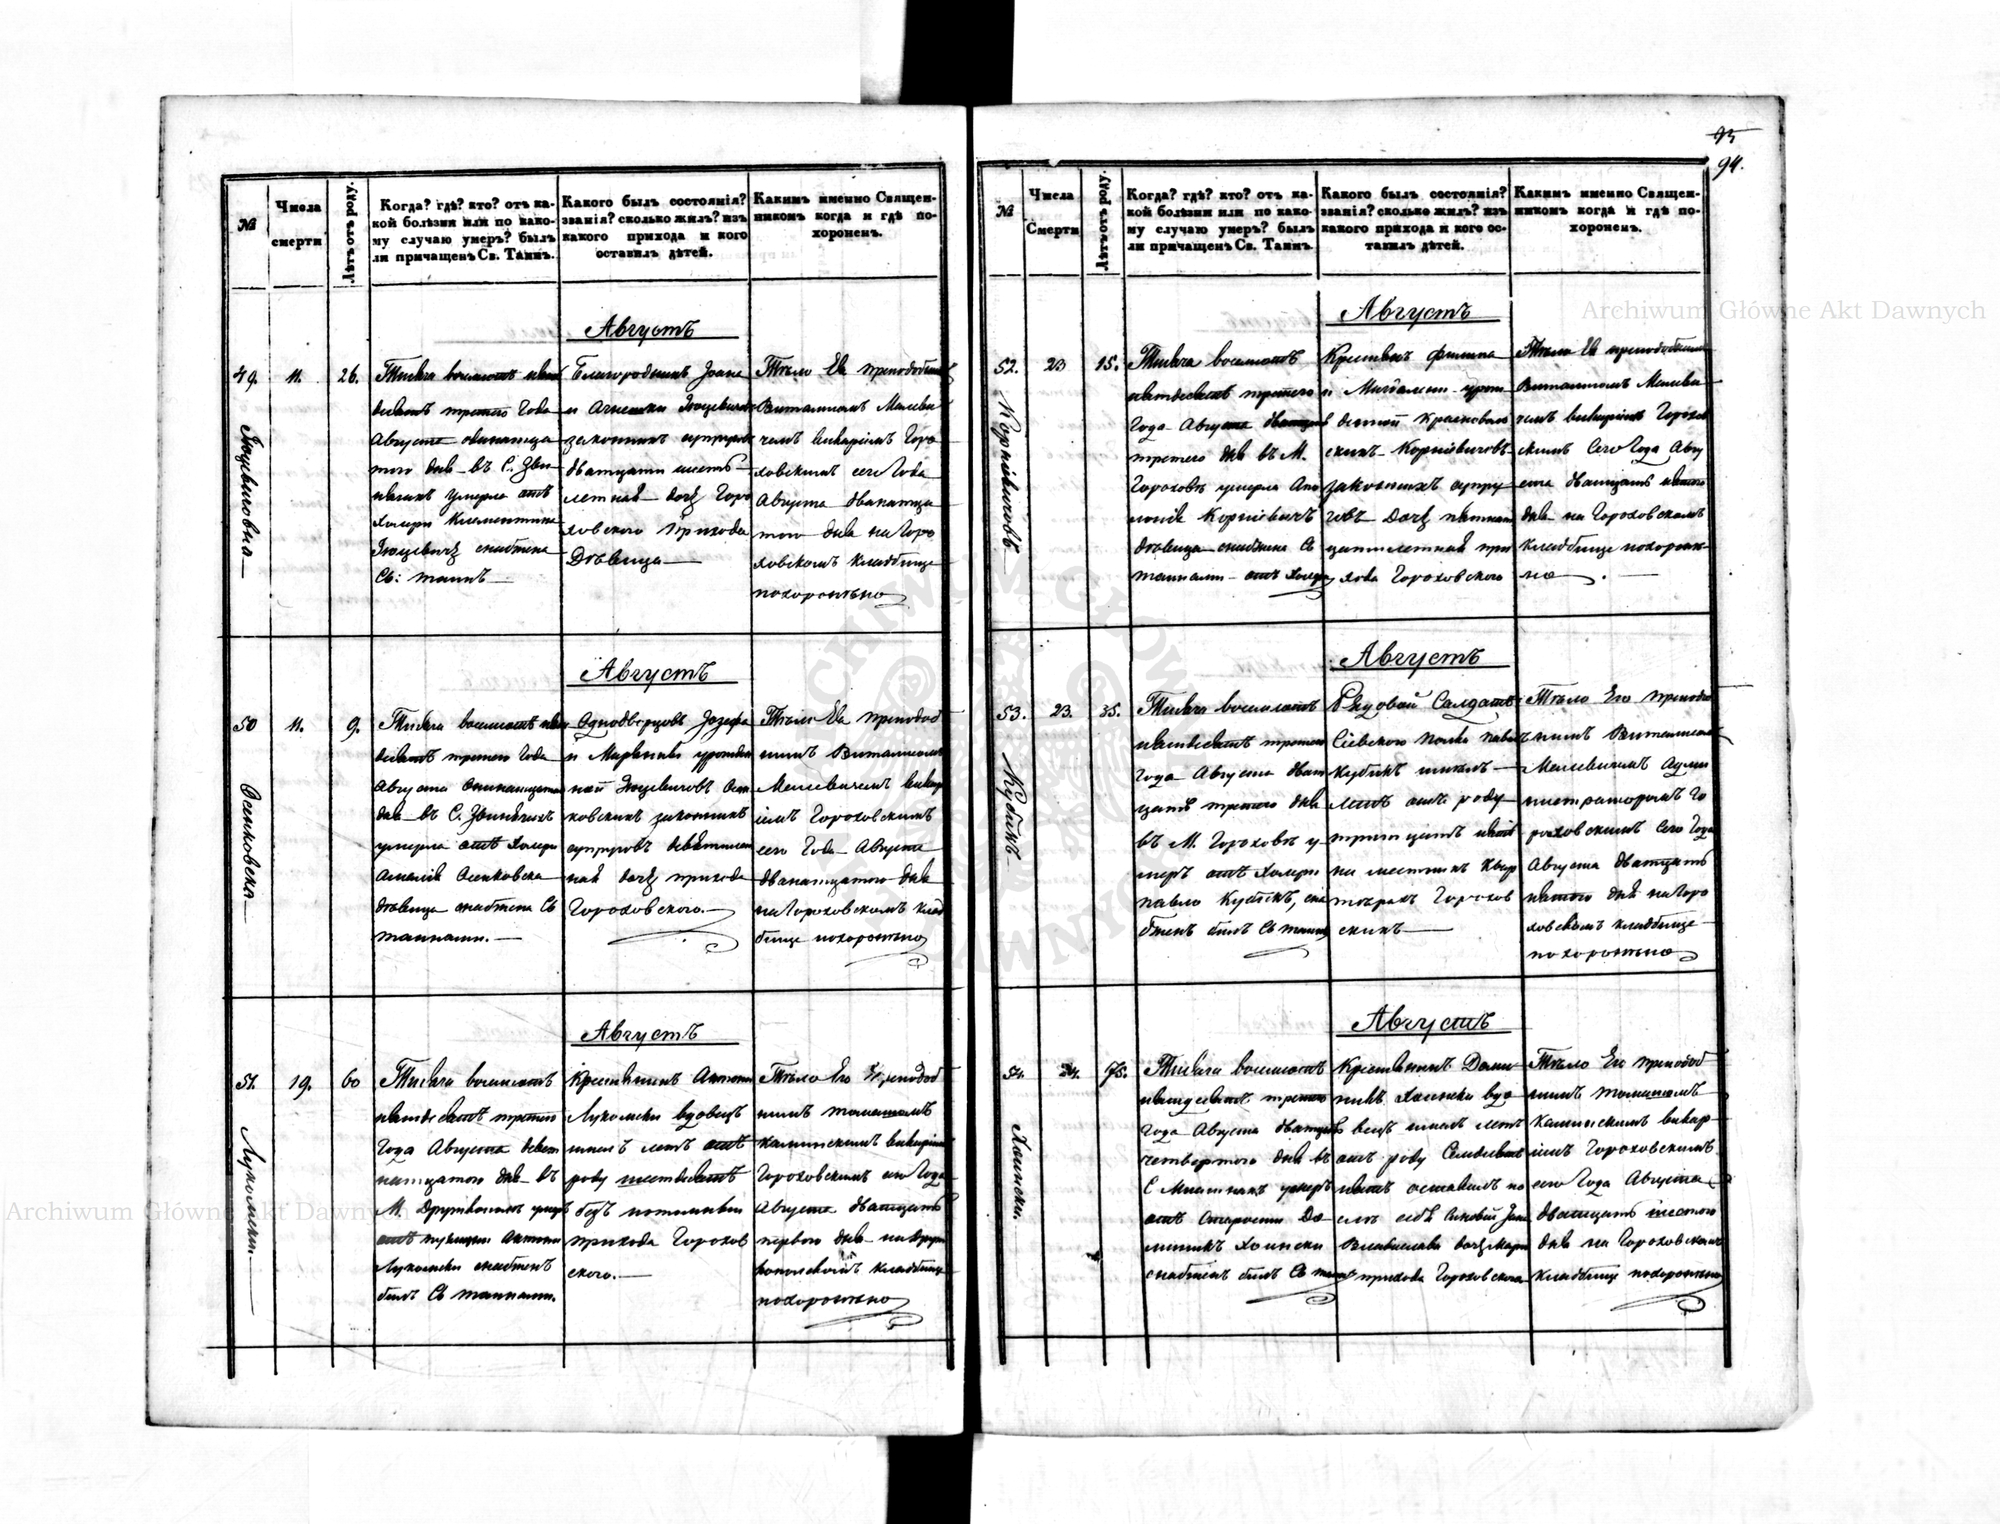 Archiwum Główne Akt Dawnych
№
Числа смерти
Лѣтъ отъ роду.
Когда? гдѣ? кто? отъ ка-
кой болѣзни или по како-
му случаю умеръ? былъ
ли причащенъ Св. Таинъ.
Какого былъ состоянія?
званія? сколько жилъ? изъ
какого прихода и кого
оставилъ дѣтей.
Какимъ именно Священ-
никомъ когда и гдѣ по-
хороненъ.
Августъ
49.
11.
26.
Тысяча восемьсотъ
десятъ третього Года
Августа
того дня въ С. Зви-
нячихъ умерла отъ
холери Клементина
Св: таинъ
Благородныхъ
законныхъ супруговъ
двадцати шесть
летная дочь Горо
ховского прихода
Дѣвица
Тѣло Ея преподобным
Виталисомъ
викаріемъ Горо
ховскимъ сего Года
Августа дванатца
того дня на Горо
ховскомъ кладбище
похоронено
Августъ
50
11.
9.
Осѣковска
Тысяча восемьсотъ
десятъ третього Года
Августа
дня въ С. Звинячихъ
умерла отъ холери
дѣвица снабжена Св
таинами.
Однодворцовъ Іозефа
и Маріанни урожден
ковскихъ законныхъ
супруговъ
ная дочь прихода
Гороховского.
Тѣло Ея преподоб
нимъ Виталисомъ
викар
іемъ Гороховскимъ
сего Года Августа
дванатцатого дня
на Гороховскомъ клад
бище похоронено
Августъ
51.
19.
60
Лукомски.
Тысяча восемьсотъ
пятдесятъ третього
Года Августа девят
натцатого дня въ
М. Дружкополѣ умеръ
отъ
Лукомски снабженъ
билъ Св таинами.
Крестянинъ Антони
Лукомски вдовецъ
имелъ летъ отъ
роду шестдесятъ
безъ потомства
прихода Горохов
ского.
Тѣло Его преподоб
нимъ Томашомъ
Каминскимъ викаріем
Гороховскимъ сего Года
Августа двадцать
первого дня на Друж
копольской кладбище
похоронено
93
94.
Archiwum Główne Akt Dawnych
№
Числа Смерти
Лѣтъ отъ роду.
Когда? гдѣ? кто? отъ ка-
кой болѣзни или по како-
му случаю умеръ? былъ
ли причащенъ Св. Таинъ.
Какого былъ состоянія?
званія? сколько жилъ? изъ
какого прихода и кого ос-
тавилъ дѣтей.
Какимъ именно Священ-
никомъ когда и гдѣ по-
хороненъ.
Августъ
52.
23
15.
Тысяча восемьсотъ
пятдесятъ третього
Года Августа двадцать
третего дня въ М.
Гороховѣ умерла Апо
лонія Корніевичъ
дѣвица снабжена Св
таинами отъ холери
Крестянъ Филипа
и Магдалени урож
денной
скихъ Корніевичовъ
законныхъ супру
говъ дочь пятнат
цатилетная при
хода Гороховского
Тѣло Ея преподобним
Виталисомъ
викаріемъ Горохов
скимъ Сего Года Авгу
ста двадцать пятого
дня на Гороховскомъ
кладбище похороне-
но.
Августъ
53.
23.
35.
Кубикъ
Тысяча восемьсотъ
пятдесятъ третього
Года Августа двад
цать третего дня
въ М. Гороховѣ у-
меръ отъ холери
Павло Кубикъ, сна
бженъ билъ Св таин
Рядовой Салдатъ
Сіевского Полка Павелъ
Кубикъ имелъ
летъ отъ роду
тритцать пять
на местнихъ квар
тирахъ Горохов
скихъ
Тѣло Его преподоб
нимъ Виталисомъ
Адми
нистраторомъ Го
роховскимъ Сего Года
Августа двадцать
пятого дня на Горо
ховскомъ кладбище
похоронено
Августъ
54.
24.
75.
Хоински.
Тысяча восемьсотъ
пятдесятъ третього
Года Августа двадцать
четвертого дня въ
умеръ
отъ старости До-
миникъ Хоински
снабженъ билъ Св таин
Крестянинъ Доми-
никъ Хоински вдо
вецъ имелъ летъ
отъ роду Семдесятъ
пять оставилъ по
Владислава дочь
прихода Гороховского
Тѣло Его преподоб
нимъ Томашомъ
Каминскимъ викар-
іемъ Гороховскимъ
сего Года Августа
двадцать шестого
дня на Гороховскомъ
кладбище похоронено
Archiwum Główne Akt Dawnych